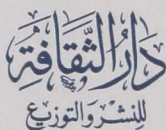 دَارُ الثَّقَافَةِ
للنشر والتوزيع